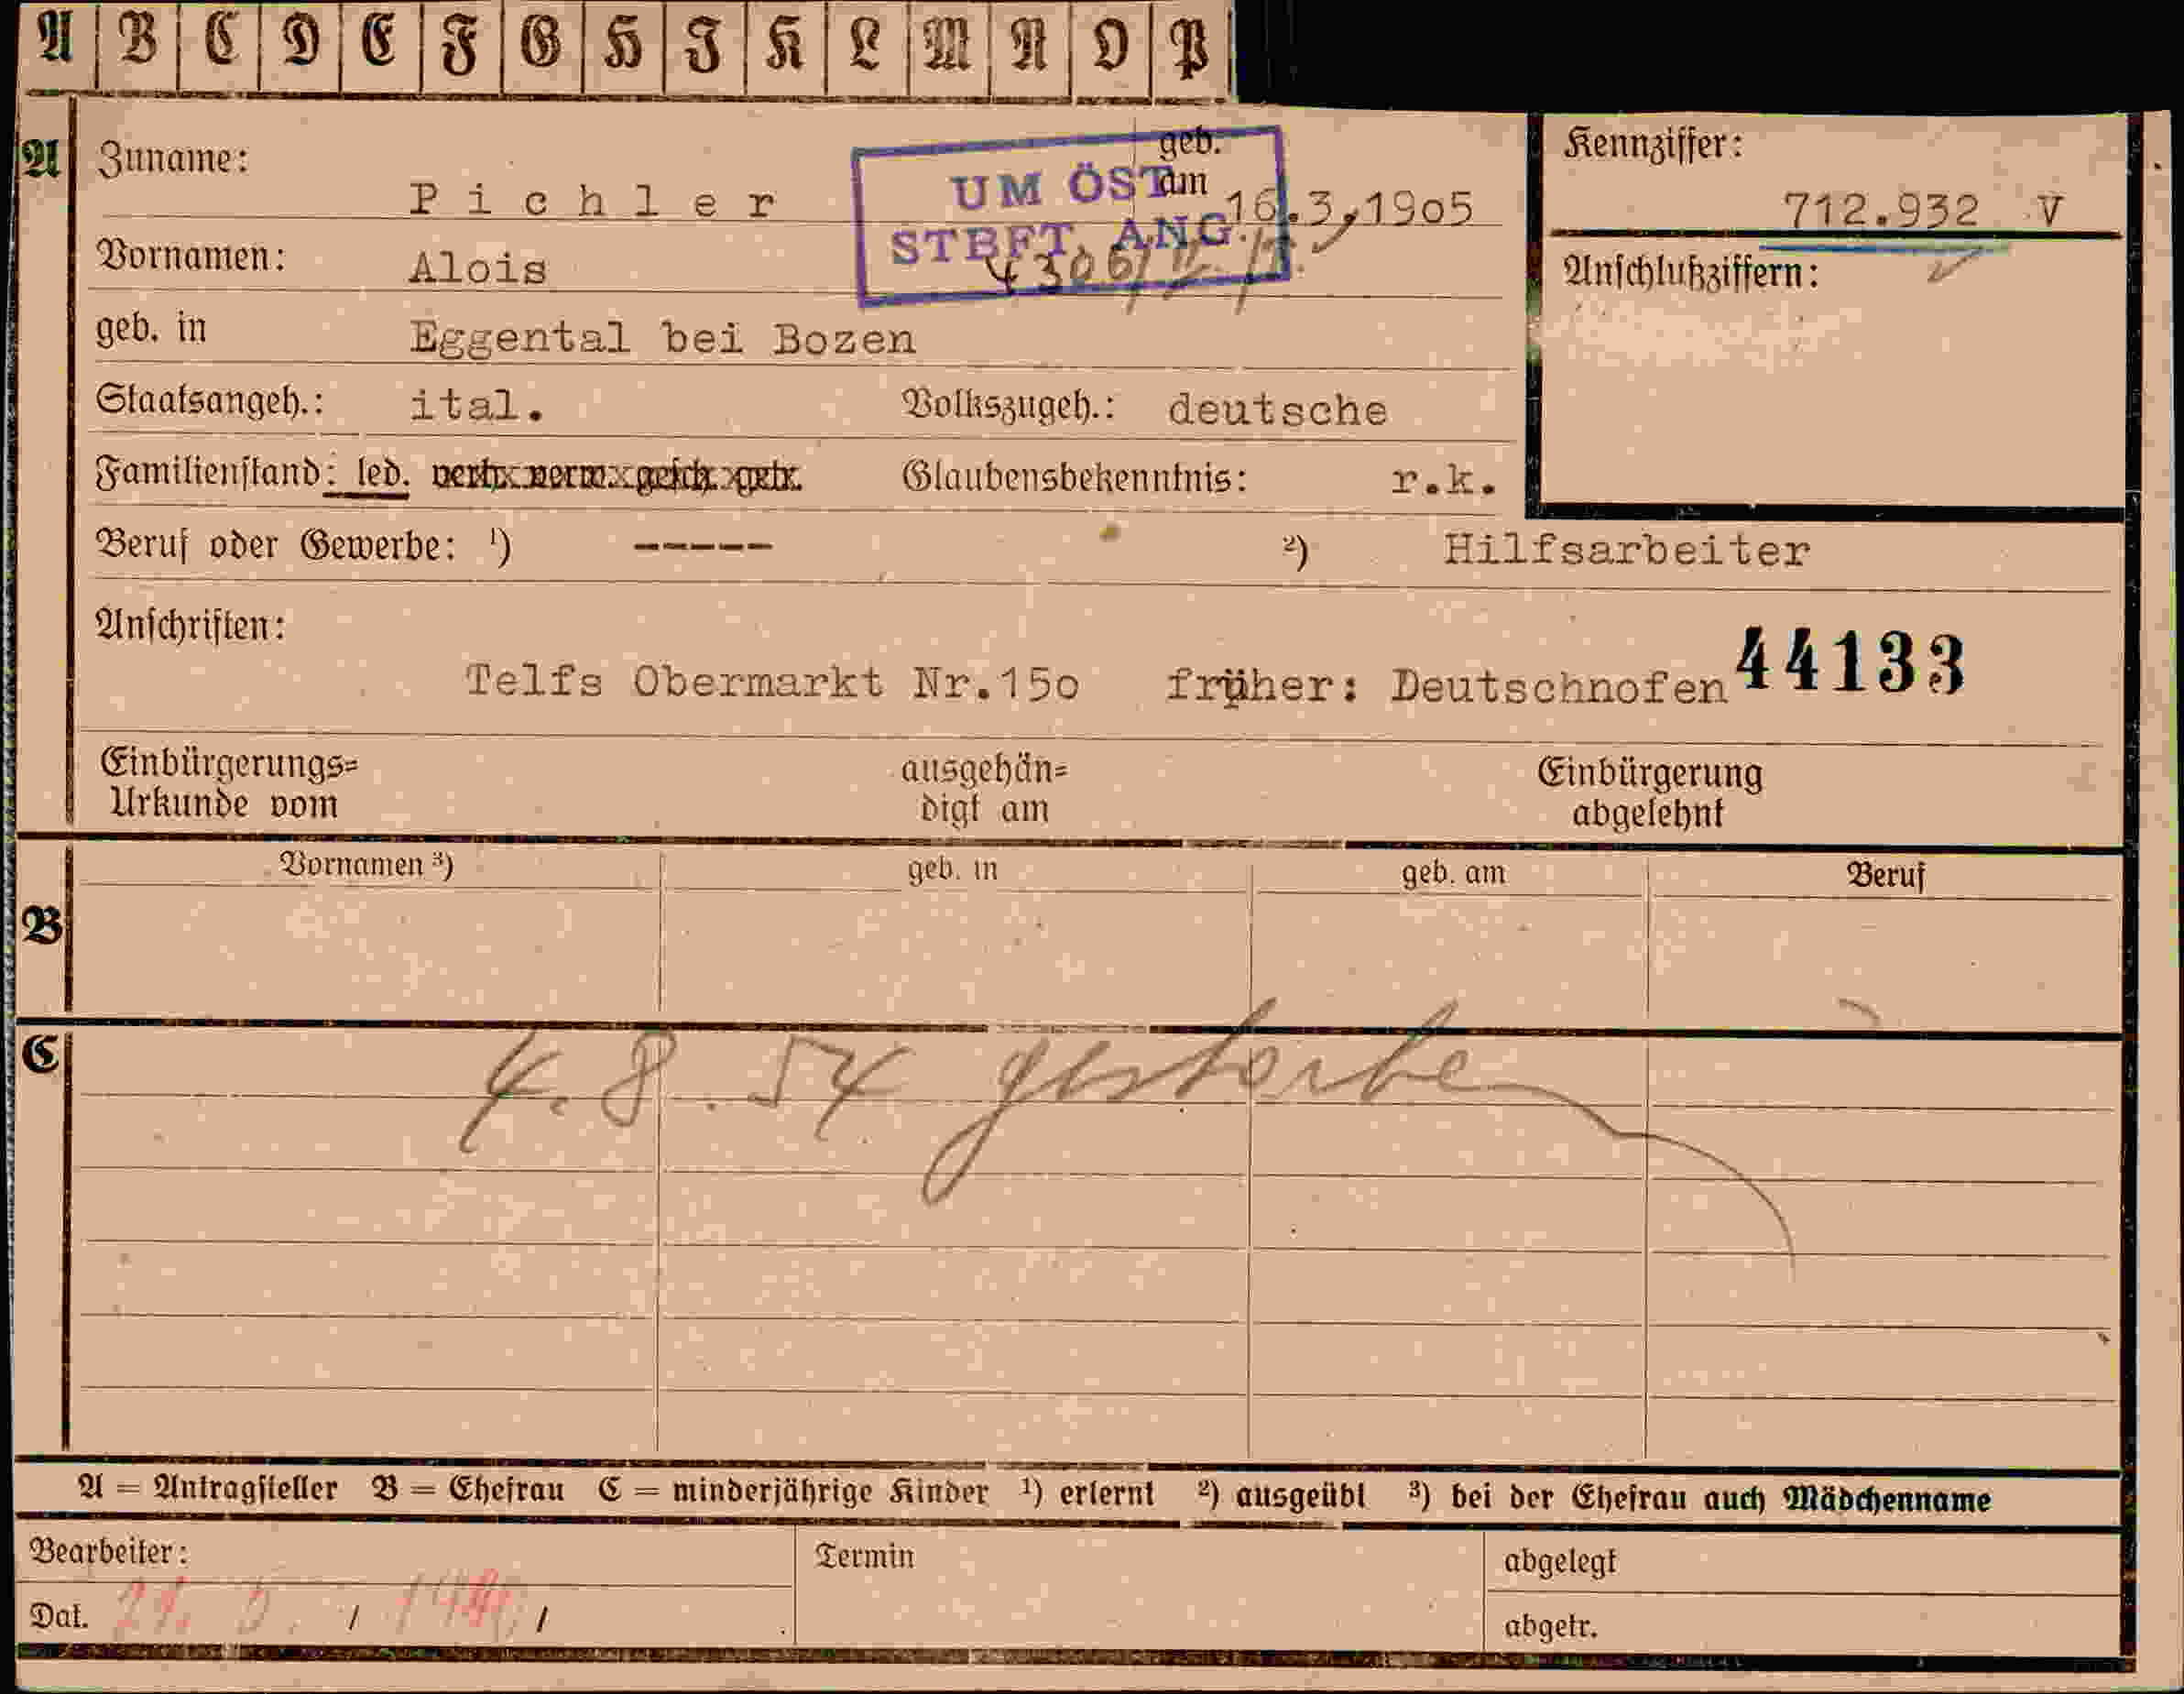 A B C D E F G H I K L M N O P
A Zuname: P i c h l e r geb. am 16.3.1905
UM ÖST
STBFT. ANG.
Kennziffer:
712.932 V
Vornamen: Alois
Anschlußziffern:
geb. in Eggental bei Bozen
Staatsangeh.: ital. Volkszugeh.: deutsche
Familienstand: led. verh. verw. gesch. getr. Glaubensbekenntnis: r.k.
Beruf oder Gewerbe: ¹) ----- ²) Hilfsarbeiter
Anschriften:
Telfs Obermarkt Nr.15o früher: Deutschnofen 44133
Einbürgerungs= ausgehän= Einbürgerung
Urkunde vom digt am abgelehnt
Vornamen ³) geb. in geb. am Beruf
B
C
4. 8. 54 gestorben
A = Antragsteller B = Ehefrau C = minderjährige Kinder ¹) erlernt ²) ausgeübt ³) bei der Ehefrau auch Mädchenname
Bearbeiter: Termin abgelegt
Dat. / / abgetr.